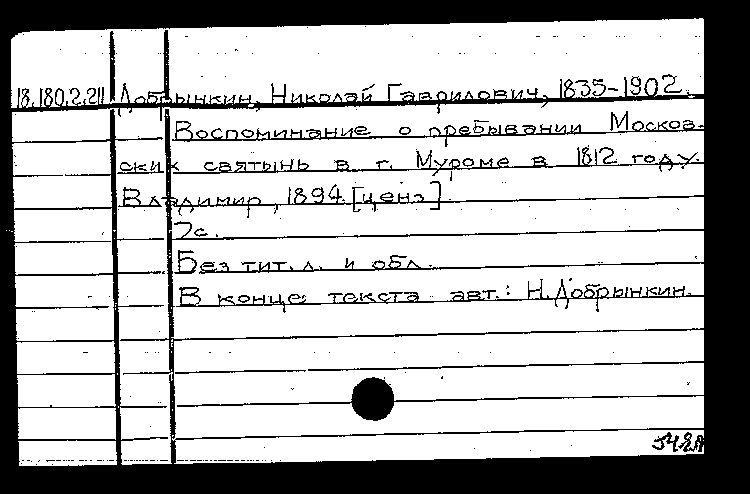 18.180.2.211 Добрынкин, Николай Гаврилович, 1835-1902.
Воспоминание о пребывании Москов-
ских святынь в г. Муроме в 1812 году.
Владимир, 1894 [ценз].
7с.
Без тит. л. и обл.
В конце текста авт.: Н.Добрынкин.